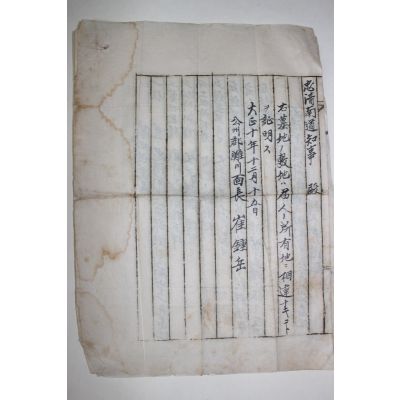 忠清南道知事 殿
右墓地ノ敷地ハ届人ノ所有地ニ相違ナキコト
ヲ証明ス
大正十年十二月十五日
公州郡灘川面長 崔鍾岳